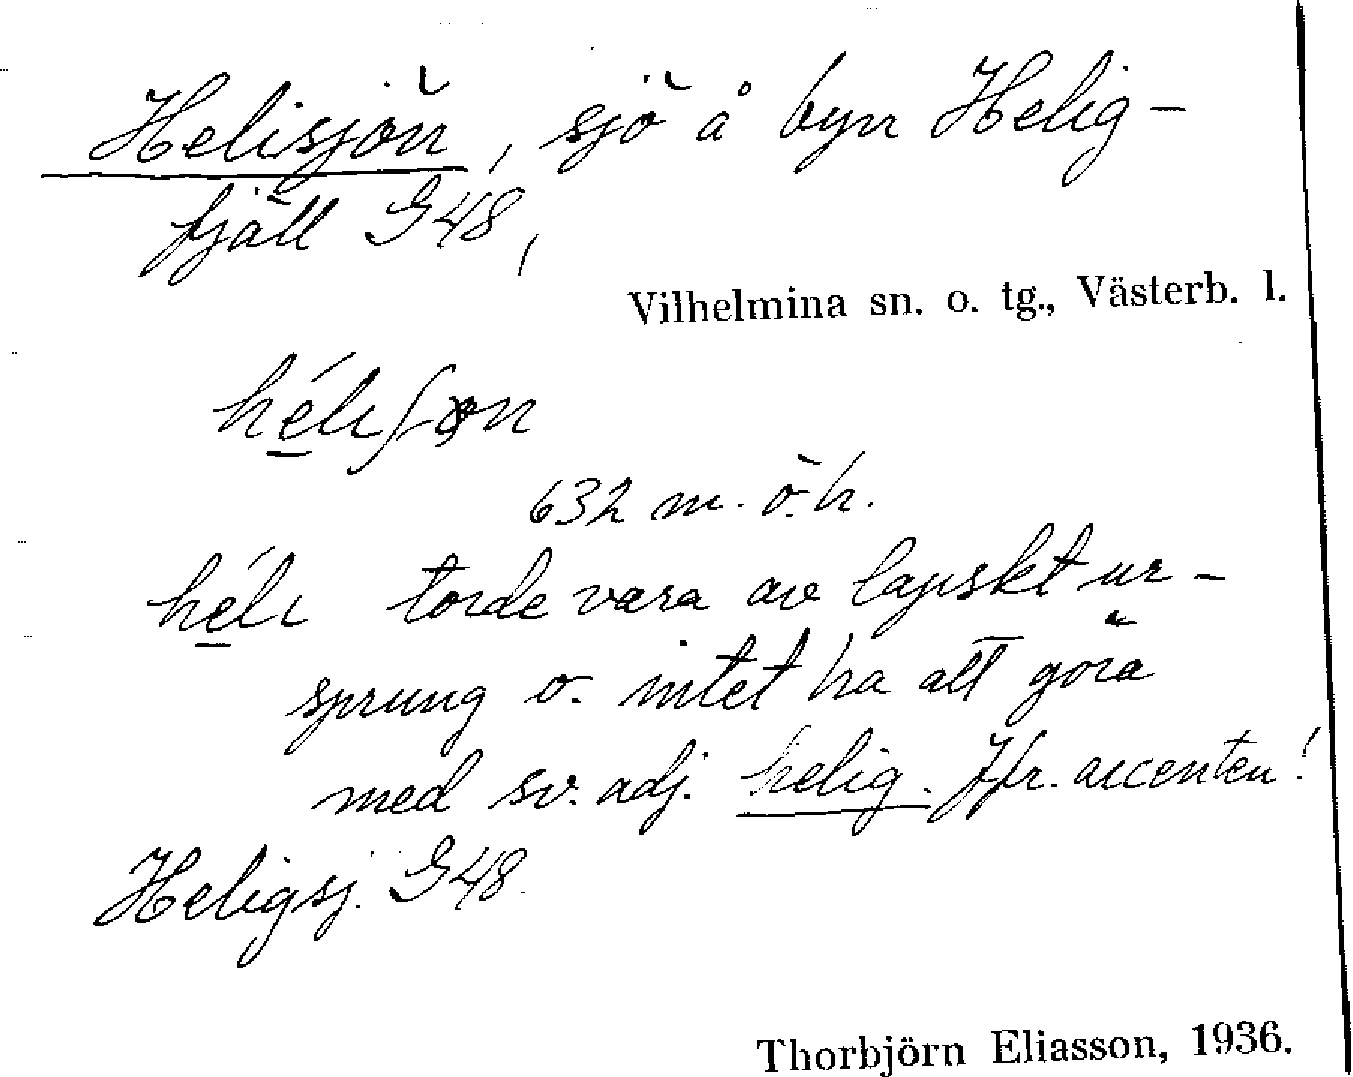 Helisjön, sjö å byn Helig-
fjäll G48,
Vilhelmina sn. o. tg., Västerb. l.
632 m. ö. h.
torde vara av lapskt ur-
sprung o. intet ha att göra
med sv. adj. helig. Jfr. accenten!
Heligsj. G48.
Thorbjörn Eliasson, 1936.